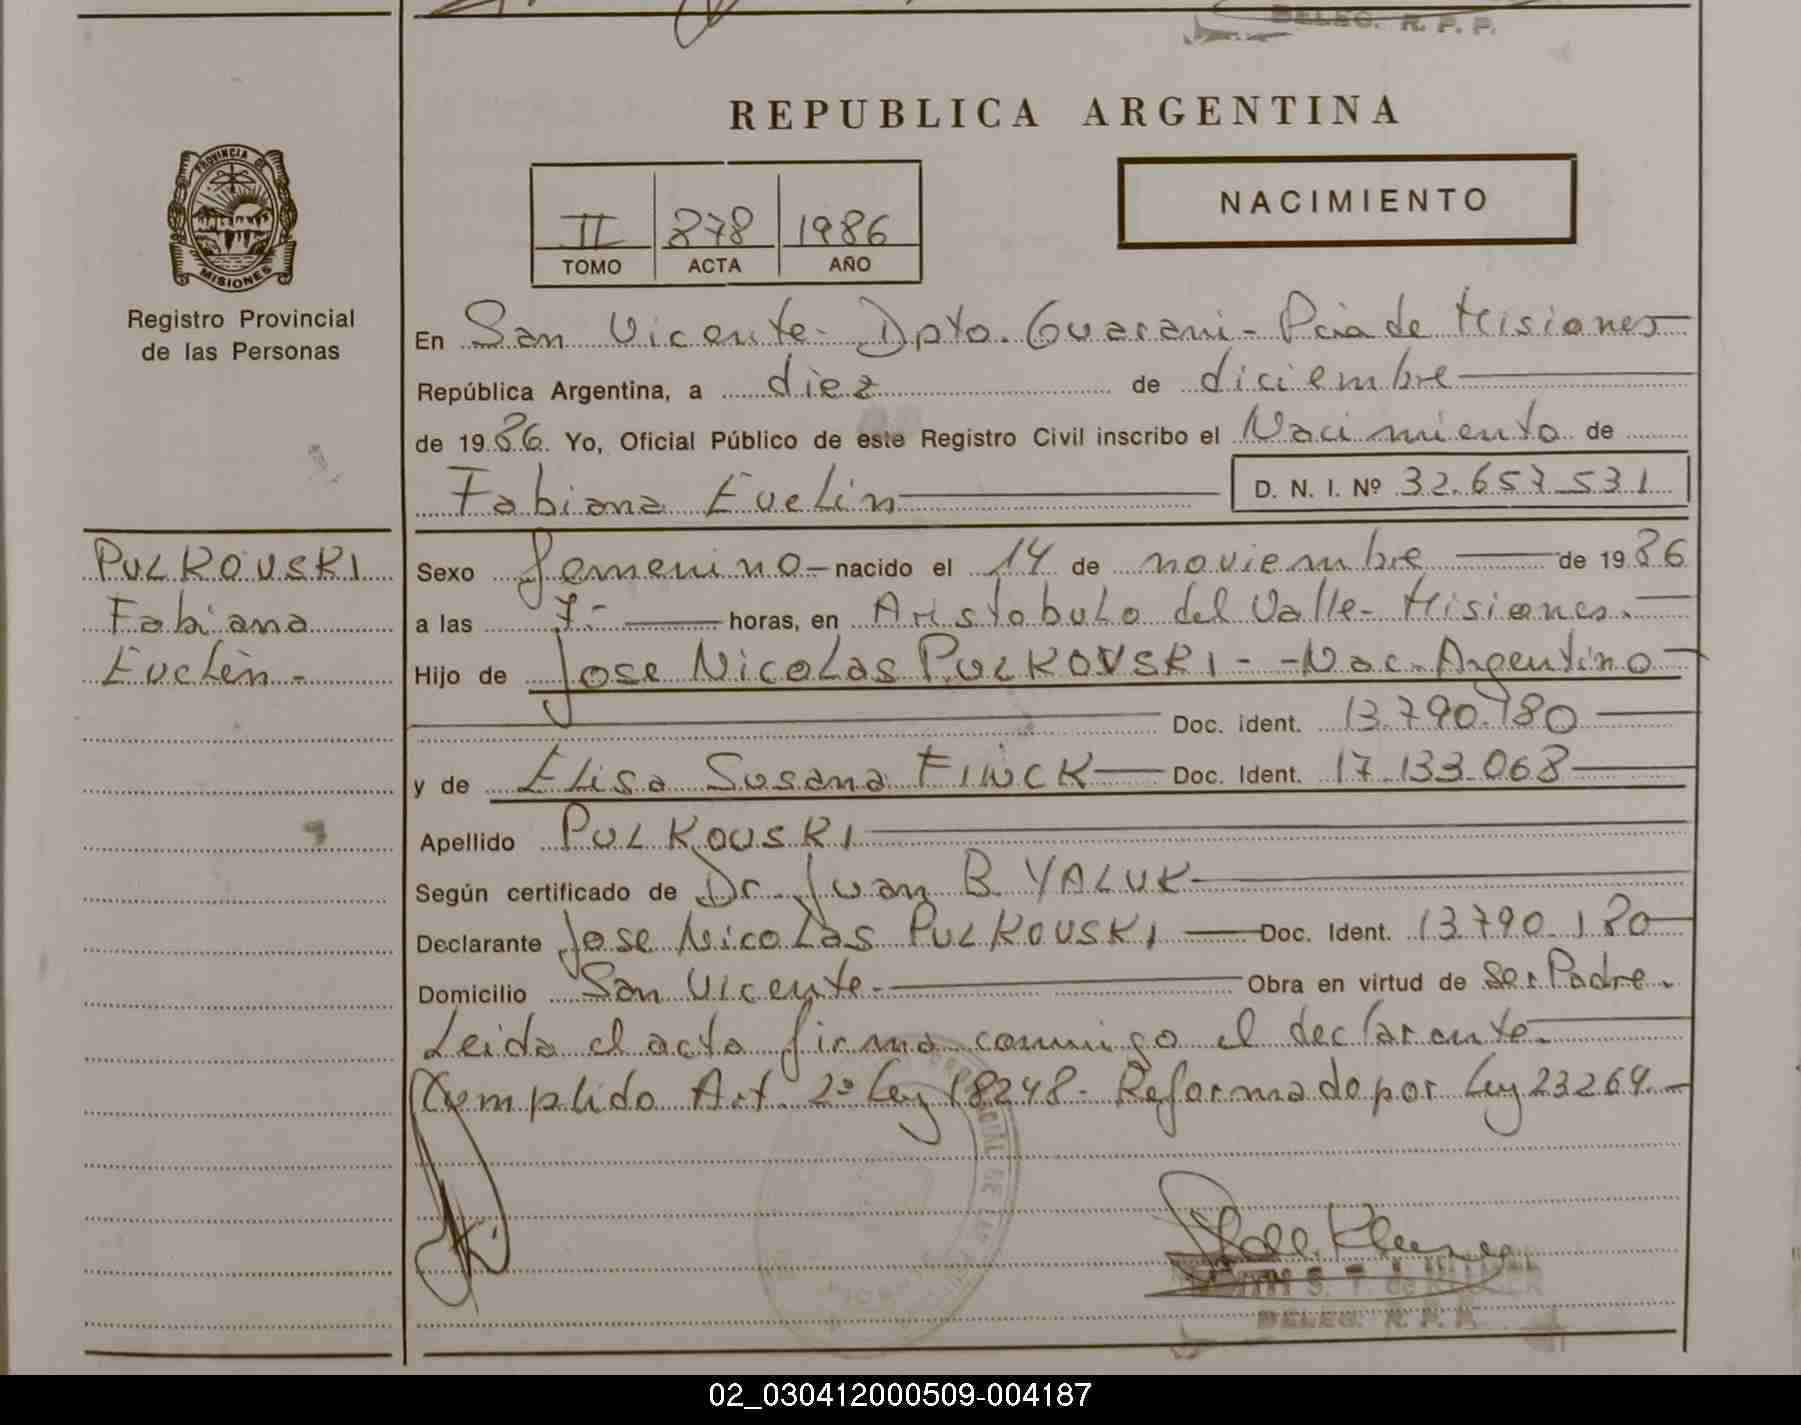 DELEG. R. P. P.
REPUBLICA ARGENTINA
NACIMIENTO
II 878 1986
TOMO ACTA AÑO
PROVINCIA DE
MISIONES
Registro Provincial
de las Personas
En San Vicente - Dpto. Guarani - Pcia de Misiones
República Argentina, a diez de diciembre
de 1986. Yo, Oficial Público de este Registro Civil inscribo el Nacimiento de
Fabiana Evelin D. N. I. Nº 32.657.531
PULKOVSKI
Fabiana
Evelin -
Sexo femenino nacido el 14 de noviembre de 1986
a las 7.- horas, en Aristobulo del Valle - Misiones.
Hijo de Jose Nicolas PULKOVSKI - - Nac. Argentino
Doc. ident. 13.790.180
y de Elisa Susana FINCK Doc. Ident. 17.133.068
Apellido PULKOVSKI
Según certificado de Dr. Juan B. YALUK
Declarante Jose Nicolas PULKOVSKI Doc. Ident. 13.790.180
Domicilio San Vicente - Obra en virtud de ser Padre.
Leida el acta firma conmigo el declarante.
Cumplido Art. 2º Ley 18248 - Reformado por Ley 23264 -
DELEG. R. P. P.
02_030412000509-004187